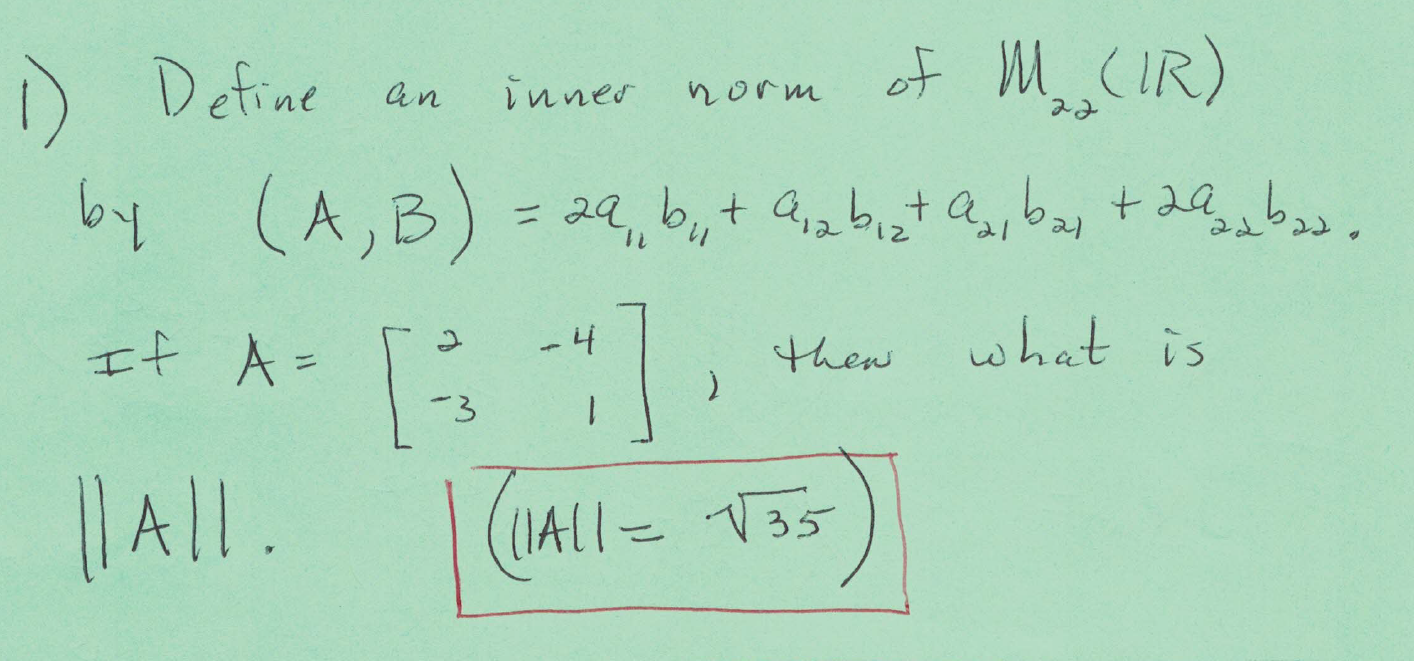 1) Define an inner norm of M₂₂(ℝ)
by (A,B) = 2a₁₁b₁₁ + a₁₂b₁₂ + a₂₁b₂₁ + 2a₂₂b₂₂.
If A = [2 -4; -3 1], then what is
||A||. (||A|| = √35)